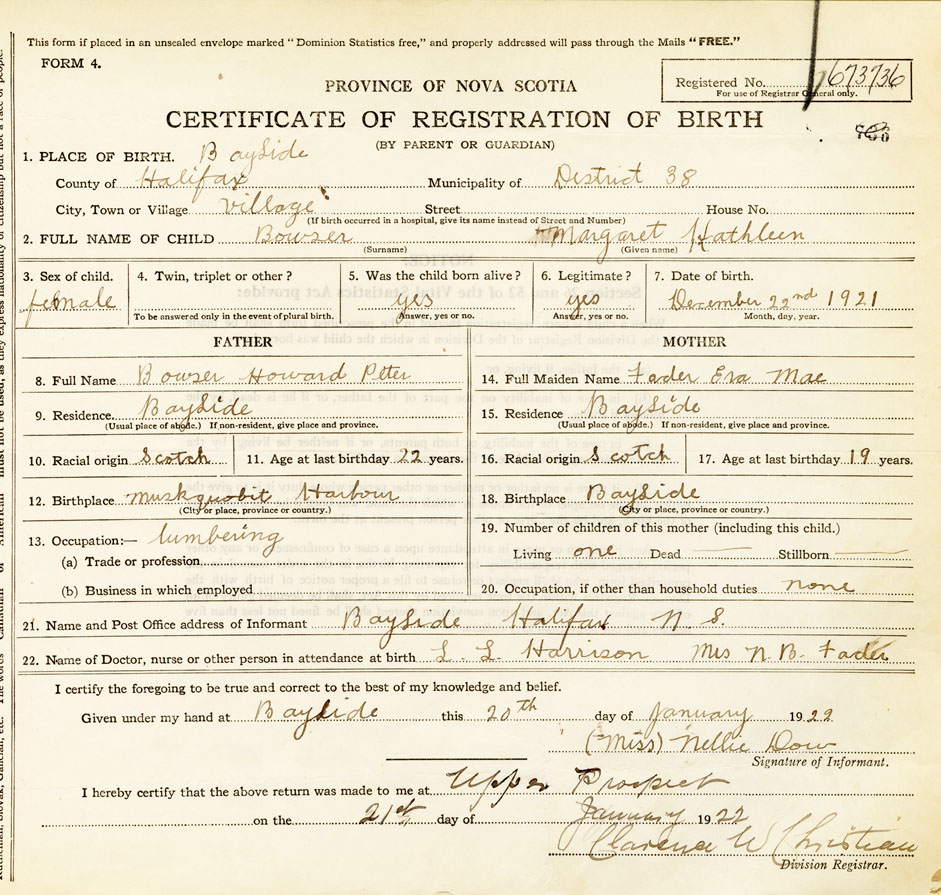 This form if placed in an unsealed envelope marked "Dominion Statistics free," and properly addressed will pass through the Mails "FREE."
FORM 4.
PROVINCE OF NOVA SCOTIA
Registered No. 673736
For use of Registrar General only.
CERTIFICATE OF REGISTRATION OF BIRTH
(BY PARENT OR GUARDIAN)
1. PLACE OF BIRTH. Bayside
County of Halifax Municipality of District 38
City, Town or Village village Street House No.
(If birth occurred in a hospital, give its name instead of Street and Number)
2. FULL NAME OF CHILD Bowser Margaret Kathleen
(Surname) (Given name)
3. Sex of child. 4. Twin, triplet or other? 5. Was the child born alive? 6. Legitimate? 7. Date of birth.
female yes yes December 22nd 1921
To be answered only in the event of plural birth. Answer, yes or no. Answer, yes or no. Month, day, year.
FATHER MOTHER
8. Full Name Bowser Howard Peter 14. Full Maiden Name Fader Eva Mae
9. Residence. BaySide 15. Residence BaySide
(Usual place of abode.) If non-resident, give place and province. (Usual place of abode.) If non-resident, give place and province.
10. Racial origin Scotch 11. Age at last birthday 22 years. 16. Racial origin Scotch 17. Age at last birthday 19 years.
12. Birthplace Muskquobit Harbour 18. Birthplace BaySide
(City or place, province or country.) (City or place, province or country.)
13. Occupation:— lumbering 19. Number of children of this mother (including this child.)
(a) Trade or profession Living one Dead — Stillborn —
(b) Business in which employed 20. Occupation, if other than household duties none
21. Name and Post Office address of Informant BaySide Halifax N.S.
22. Name of Doctor, nurse or other person in attendance at birth L. L. Harrison Mrs N. B. Fader
I certify the foregoing to be true and correct to the best of my knowledge and belief.
Given under my hand at Bayside this 20th day of January 1922
(Miss) Nellie Dow
Signature of Informant.
I hereby certify that the above return was made to me at Upper Prospect
on the 21st day of January 1922
Clarence W Christian
Division Registrar.